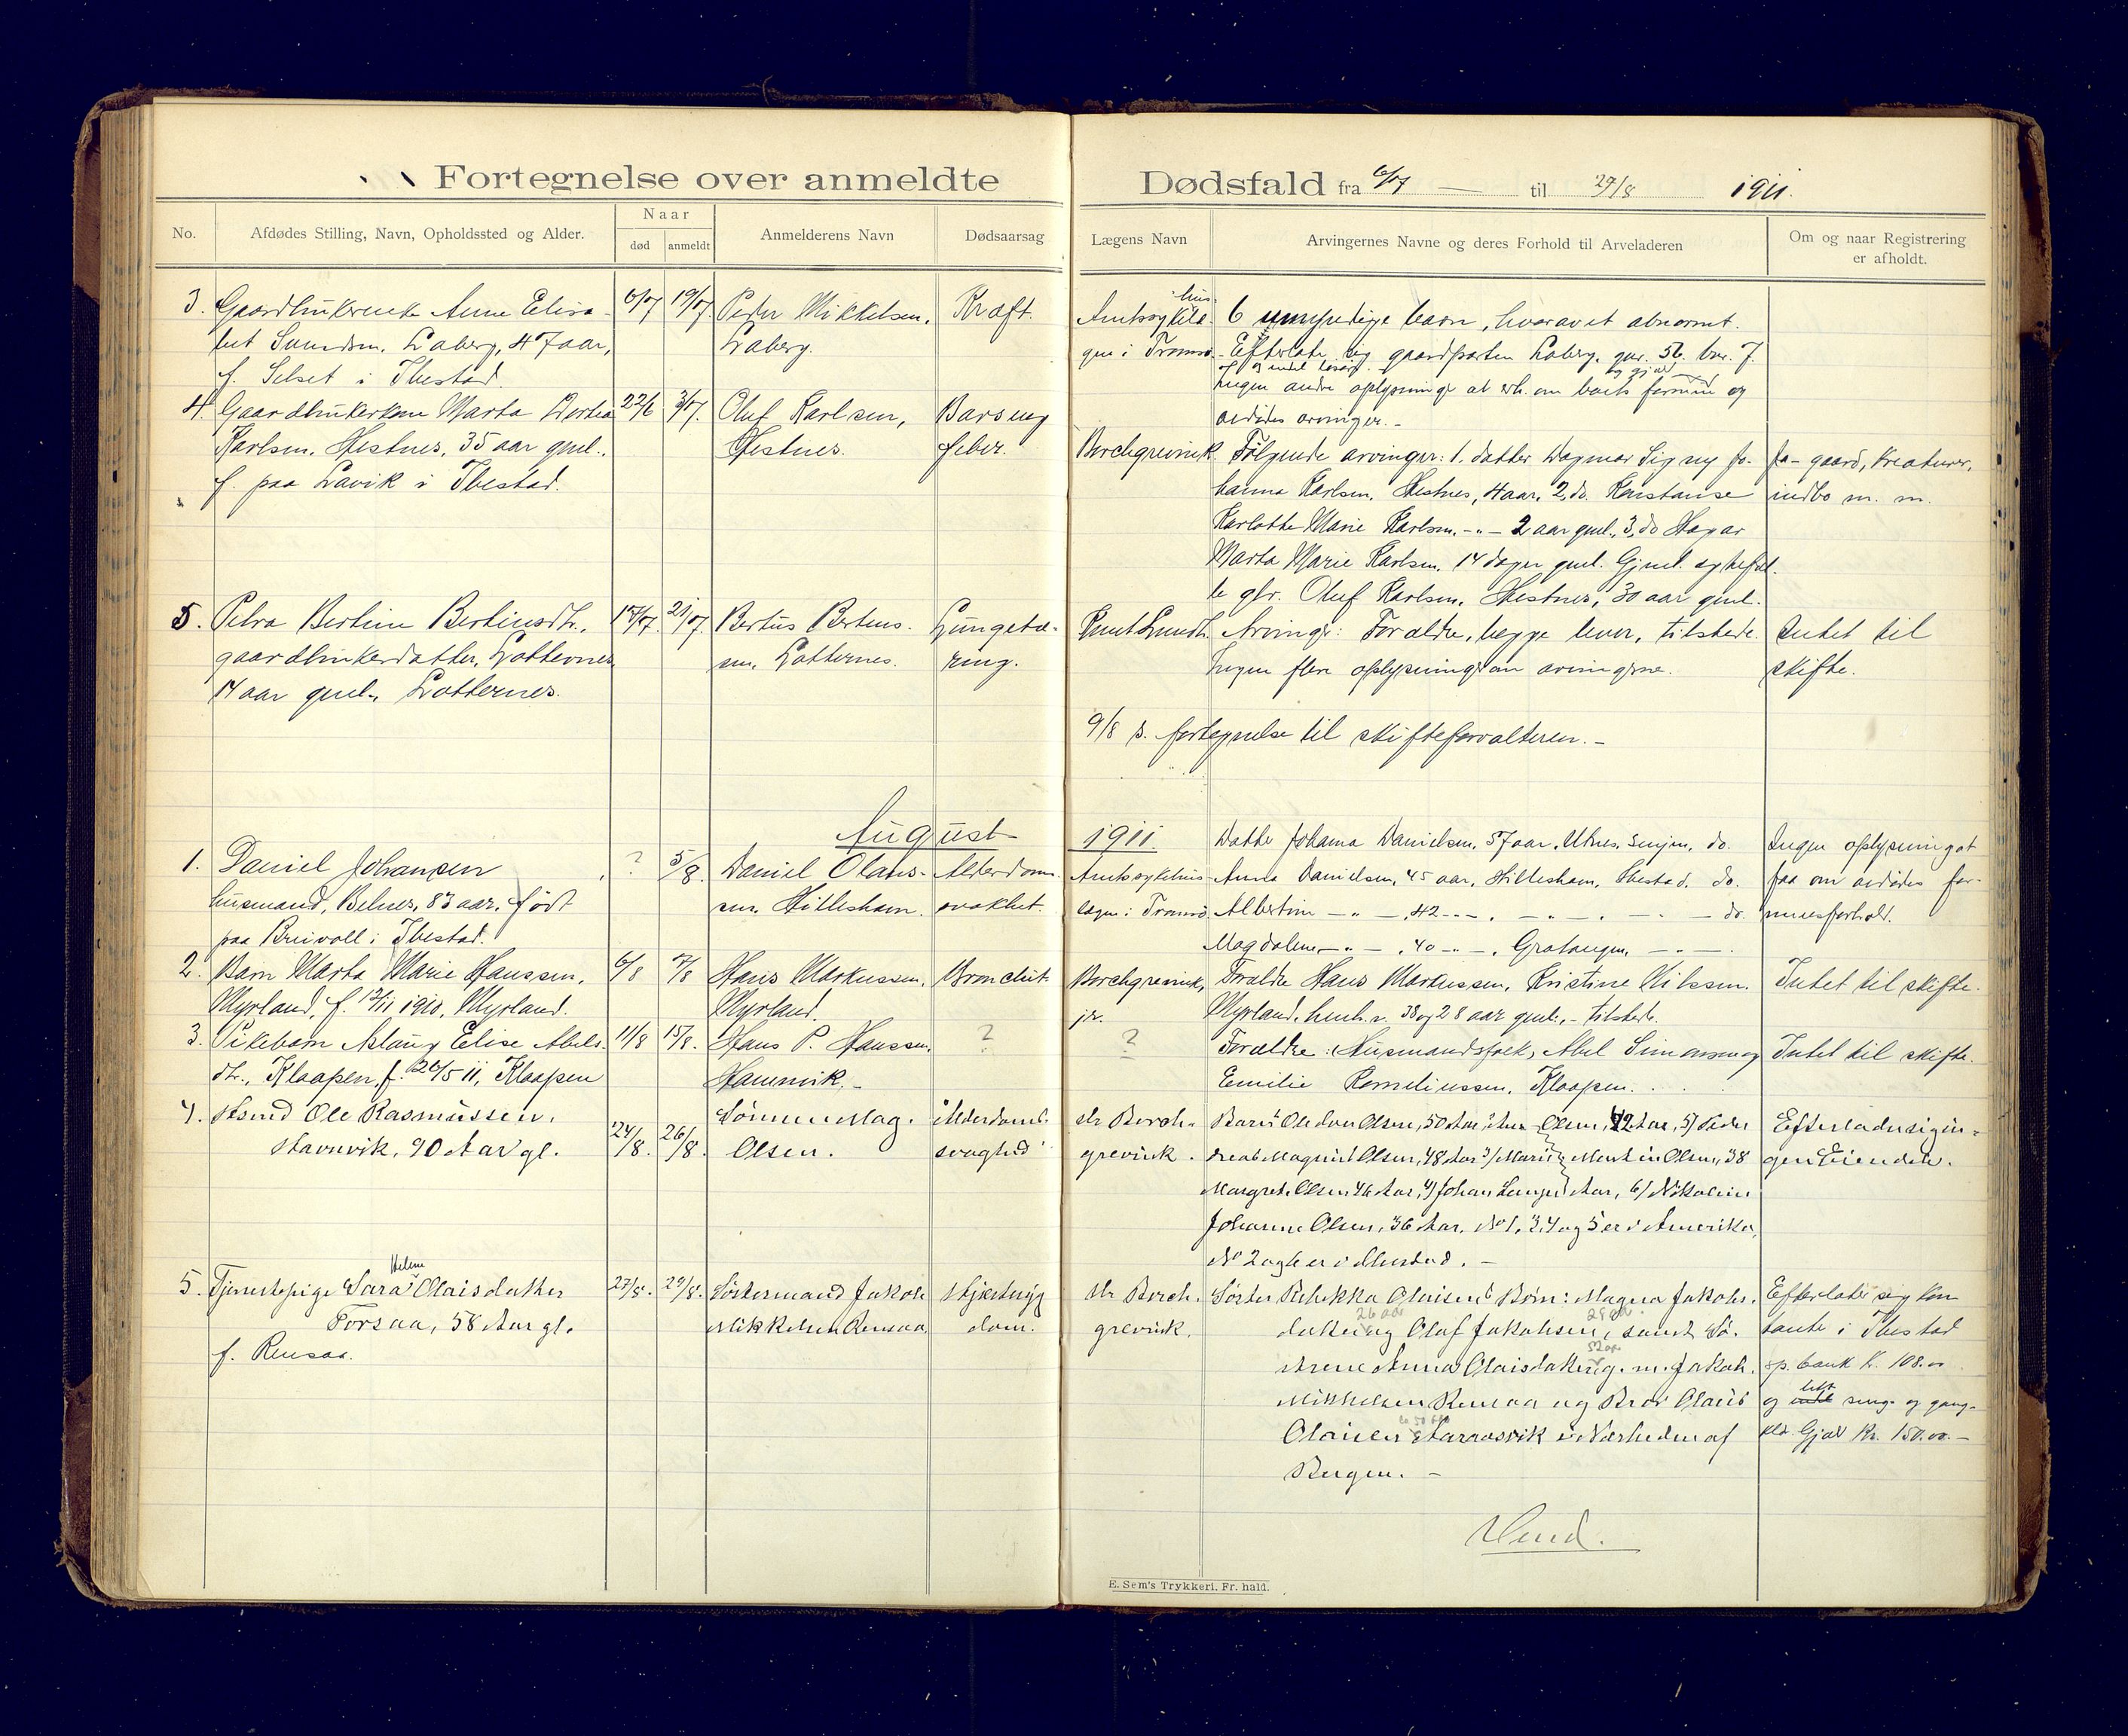 Fortegnelse over anmeldte Dødsfald fra 6/7 — til 29/8 1911.
No.
Afdødes Stilling, Navn, Opholdssted og Alder.
Naar
død
anmeldt
Anmelderens Navn
Dødsaarsag
Lægens Navn
Arvingernes Navne og deres Forhold til Arveladeren
Om og naar Registrering
er afholdt.
3. Gaardbrukerenke Anne Elisa-
bet Laberg, 47 aar,
f. Selset i Ibestad.
6/7 19/7.
Peder Mikkelsen,
Laberg.
Kræft.
hus-
Amtssykla-
i Tromsø
6 umyndige barn, hvorav et abnormt.
Efterlate sig gaardparten Laberg, gnr. 56. bnr. 7.
Ingen andre oplysninger at erh. om boets formue og
avdødes arvinger. -
4. Gaardbrukerkone Marta
Karlsen, Hestnes, 35 aar gml.,
f. paa Lavik i Ibestad.
22/6 3/7.
Oluf Karlsen,
Hestnes.
Barseng
feber.
Borchgrevink
Følgende arvinger: 1. datter Dagmar Signy Jo-
hanna Karlsen, Hestnes, 4 aar, 2, do. Konstanse
Karlotte Marie Karlsen, -"- 2 aar gml., 3, do Hagar
Marta Marie Karlsen, 14 dager gml. Gjenl.
Oluf Karlsen, Hestnes, 30 aar gml.
Ja - gaard, kreaturer,
indbo m. m.
5. Petra Bertine Bertinsdtr.,
gaardbrukerdatter, Lotternes
14 aar gml., Lotternes.
17/7. 21/7.
Bertus Bertins-
sen, Lotternes.
Lungetu-
ring.
Arvinger: Forældre, begge lever, tilstede.
Ingen flere oplysninger om arvingerne.
Intet til
skifte.
9/8 s. fortegnelse til skifteforvalteren. -
August 1911.
1. Daniel Johansen
husmand, Belnes, 83 aar, født
paa Breivoll i Ibestad.
? 5/8.
Daniel Olaus-
sen, Hillesham.
Alderdoms-
svakhet.
Amtssykehus-
læge i Tromsø
Datter Johanna Danielsen, 57 aar, Utnes, Senjen, do.
Anna Danielsen, 45 aar, Hillesham, Ibestad. do.
Albertine -"- , 42 -"- , -"- , -"- do.
Magdalene -"- , 40 -"- , Gratangen, -"-
Ingen oplysning at
faa om avdødes for-
muesforhold.
2. Barn Marta Marie Hanssen,
Myrland, f. 12/11 1910, Myrland.
6/8 7/8
Hans Markussen,
Myrland.
Bronchit
Borchgrevink,
jr.
Foraldre Hans Markussen, Kristine Nilssen,
Myrland, henh. v. 38 og 28 aar gml., - tilstede.
Intet til skifte.
3. Pikebarn Aslaug Elise Abels-
dtr., Klaapen, f. 20/5 11, Klaapen
11/8 15/8.
Hans P. Hanssen,
Hamnvik. -
?
?
Forældre: Husmandsfolk, Abel Simonsen og
Emilie Korneliussen, Klaapen.
Intet til skifte.
4. Ole Rasmussen,
Stavnvik, 90 Aar gl.
24/8. 26/8.
Sønnen Mag.
Olsen.
Alderdoms-
svaghed
Dr Borch-
grevink.
Olsen, 50 Aar, Olsen, 42 Aar, 5/ Peder
Magnus Olsen, 48 Aar 3/ Martin Olsen, 38
Margrete Olsen 46 Aar, 4/ Johan Aar, 6/ Nikoline
Johanne Olsen, 36 Aar. No 1, 3, 4 og 5 er i Amerika,
No 2 og 6 er i Ibestad. -
Efterlader sig in-
gen Eiendele.
5. Tjenestepige Sara Helene Olaisdatter
Forsaa, 58 Aar gl.
f. Rensaa.
27/8. 29/8.
Søstermand Jakob
Mikkelsen Rensaa
Dr Borch-
grevink.
Søster Rebekka Olaisens Børn: Magna Jakobs-
26 aar
datter og Olaf Jakobsen, samt Sø-
Anna Olaisdatter, g. m. Jakob
Mikkelsen Rensaa og Bror Olaus
Olaisen i Nærheden af
Bergen. -
Efterlater sig kon-
tante i Ibestad
sp. bank Kr. 108.00
og litt seng- og gang-
klær. Gjæld Kr. 150.00. -
Vend.
E. Sem's Trykkeri, Fr.hald.